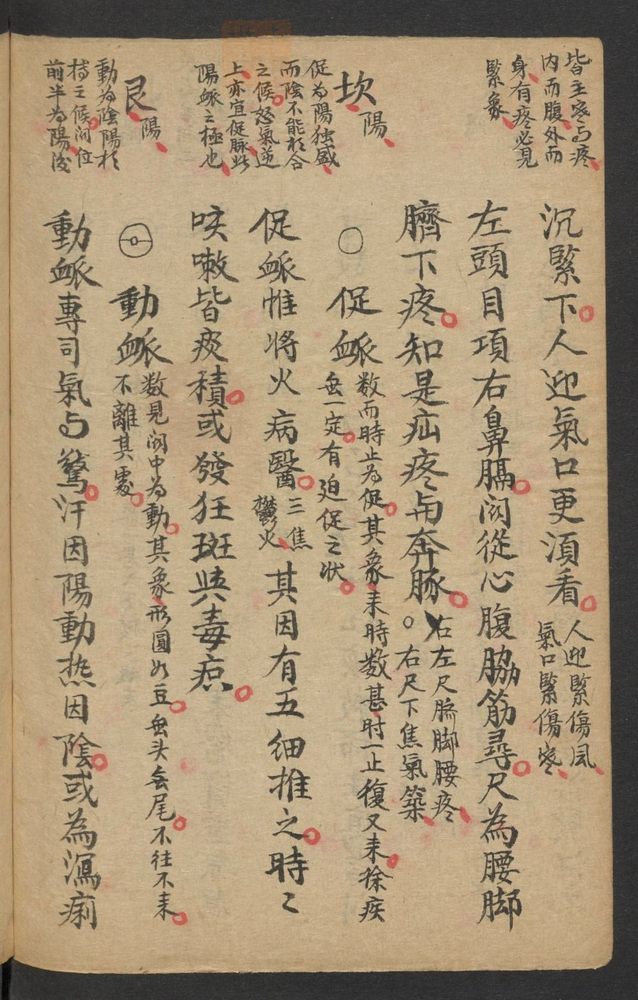 皆主寒与疼
内而腹外而
身有疼必見
緊象
沉緊下人迎氣口更湏看
人迎緊傷風
氣口緊傷寒
左頭目項右鼻膈関從心腹脇筋尋尺為腰脚
臍下疼知是疝疼與奔豚
右左尺臍脚腰疼
右尺下焦氣築
坎陽
促为陽独盛
而陰不能於合
之候怒氣逆
上亦宜促脉此
陽脈之極也
〇促脈
数而時止为促其象来時数甚时一止復又来徐疾
無定有迫促之状
促脈惟将火病醫
三焦
鬱火
其因有五細推之時〻
咳嗽皆痰積或發狂斑與毒疽
艮陽
動为陰陽於
持之候関位
前半为陽後
動脈
数見関中为動其象形圓如豆無头無尾不往不来
不離其處
動脈專司氣与驚汗因陽動热因陰或為瀉痢